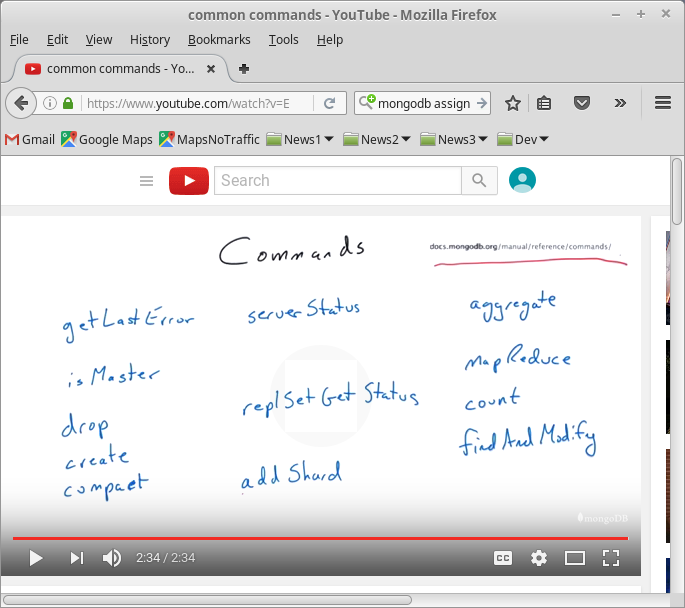 common commands - YouTube - Mozilla Firefox
File Edit View History Bookmarks Tools Help
common commands - Yo...
https://www.youtube.com/watch?v=E
mongodb assign
Gmail Google Maps MapsNoTraffic News1 News2 News3 Dev
Search
Commands
docs.mongodb.org/manual/reference/commands/
getLastError
isMaster
drop
create
compact
serverStatus
replSetGetStatus
addShard
aggregate
mapReduce
count
findAndModify
mongoDB
2:34 / 2:34
CC